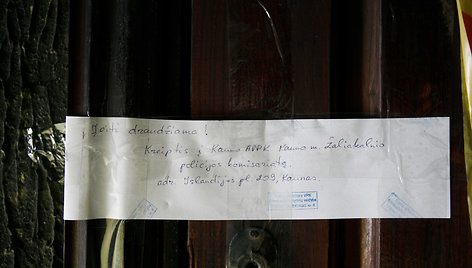 Įeiti draudžiama!
Kreiptis į Kauno AVPK Kauno m. Žaliakalnio
policijos komisariatą,
adr. Islandijos pl. 259, Kaunas.